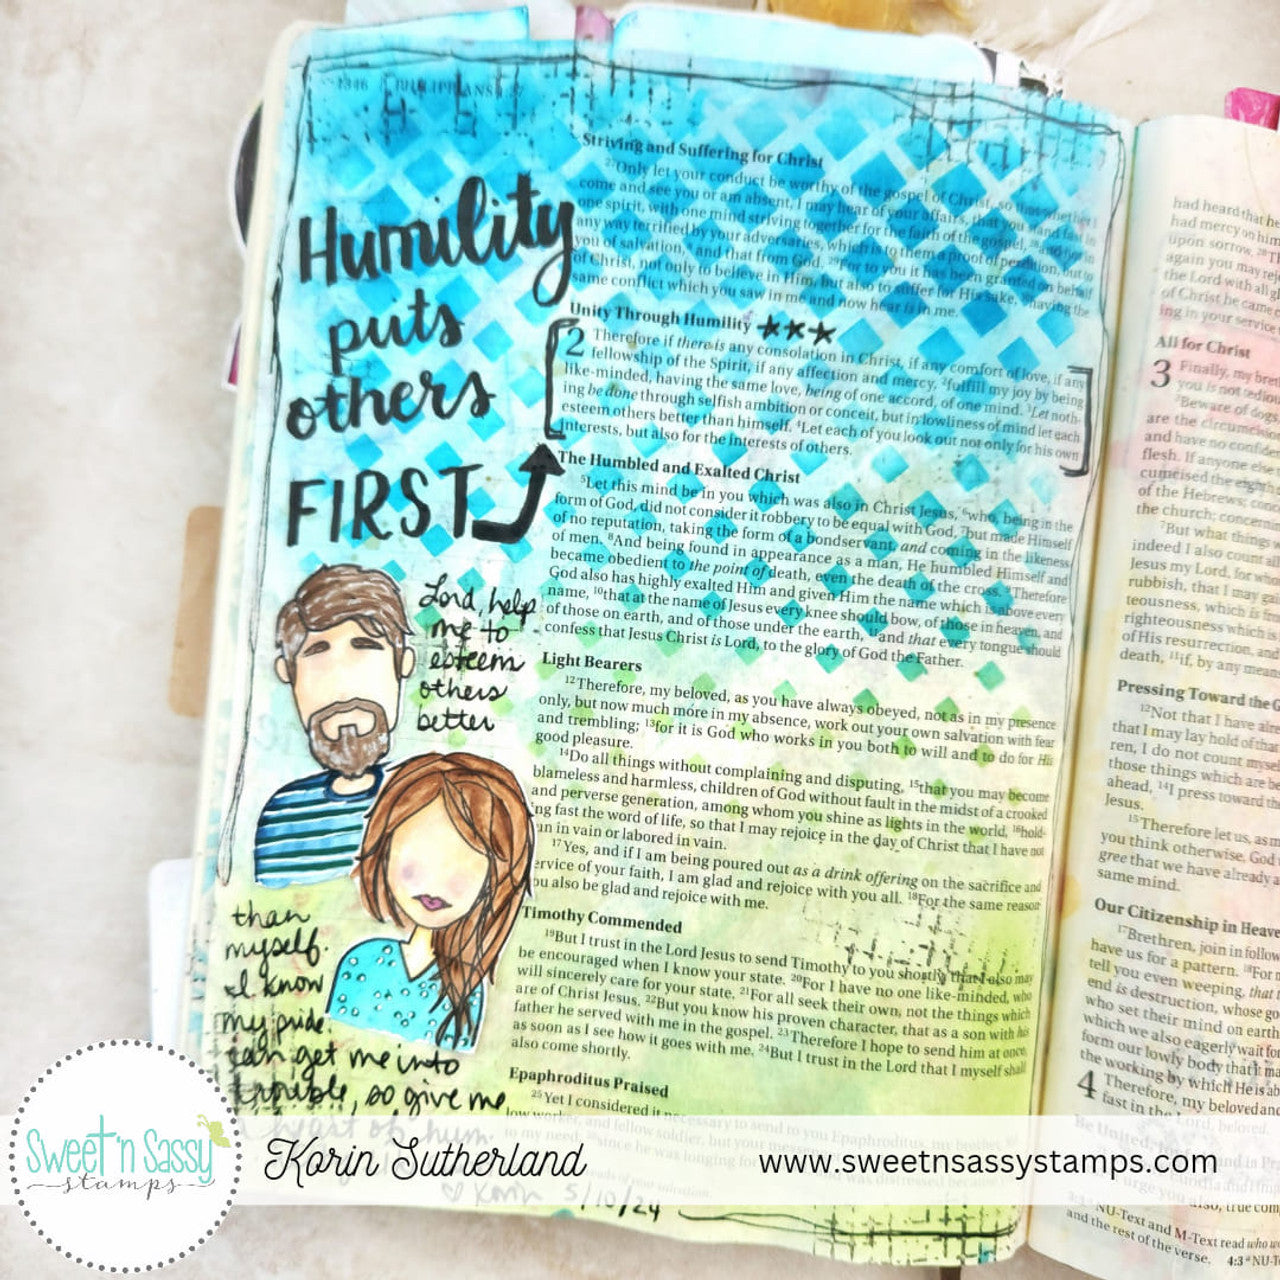 1346
Humility
puts
others
FIRST
Lord, help
me to
esteem
others
better
than
myself.
I know
my pride
can get me into
trouble, so give me
a heart of hum
♡ Korin 5/10/24
Striving and Suffering for Christ
27Only let your conduct be worthy of the gospel of Christ, so that whether I
come and see you or am absent, I may hear of your affairs, that you stand fast in
one spirit, with one mind striving together for the faith of the gospel, 28and not in
any way terrified by your adversaries, which is to them a proof of perdition, but to
you of salvation, and that from God. 29For to you it has been granted on behalf
of Christ, not only to believe in Him, but also to suffer for His sake, 30having the
same conflict which you saw in me and now hear is in me.
Unity Through Humility ★★★
2 Therefore if there is any consolation in Christ, if any comfort of love, if any
fellowship of the Spirit, if any affection and mercy, 2fulfill my joy by being
like-minded, having the same love, being of one accord, of one mind. 3Let noth-
ing be done through selfish ambition or conceit, but in lowliness of mind let each
esteem others better than himself. 4Let each of you look out not only for his own
interests, but also for the interests of others.
The Humbled and Exalted Christ
5Let this mind be in you which was also in Christ Jesus, 6who, being in the
form of God, did not consider it robbery to be equal with God, 7but made Himself
of no reputation, taking the form of a bondservant, and coming in the likeness
of men. 8And being found in appearance as a man, He humbled Himself and
became obedient to the point of death, even the death of the cross. 9Therefore
God also has highly exalted Him and given Him the name which is above every
name, 10that at the name of Jesus every knee should bow, of those in heaven, and
of those on earth, and of those under the earth, 11and that every tongue should
confess that Jesus Christ is Lord, to the glory of God the Father.
Light Bearers
12Therefore, my beloved, as you have always obeyed, not as in my presence
only, but now much more in my absence, work out your own salvation with fear
and trembling; 13for it is God who works in you both to will and to do for His
good pleasure.
14Do all things without complaining and disputing, 15that you may become
blameless and harmless, children of God without fault in the midst of a crooked
and perverse generation, among whom you shine as lights in the world, 16hold-
ing fast the word of life, so that I may rejoice in the day of Christ that I have not
un in vain or labored in vain.
17Yes, and if I am being poured out as a drink offering on the sacrifice and
ervice of your faith, I am glad and rejoice with you all. 18For the same reason
ou also be glad and rejoice with me.
Timothy Commended
19But I trust in the Lord Jesus to send Timothy to you shortly, that I also may
be encouraged when I know your state. 20For I have no one like-minded, who
will sincerely care for your state. 21For all seek their own, not the things which
are of Christ Jesus. 22But you know his proven character, that as a son with his
father he served with me in the gospel. 23Therefore I hope to send him at once,
as soon as I see how it goes with me. 24But I trust in the Lord that I myself shall
also come shortly.
Epaphroditus Praised
25Yet I considered it necessary to send to you Epaphroditus, my brother,
low worker, and fellow soldier, but your
to my need; 26since he was longing for
had heard that he
had mercy on him
upon sorrow. 28Th
again you may re
the Lord with all g
of Christ he came
ing in your service
All for Christ
3 Finally, my bre
you is not tedio
2Beware of dogs
are the circumcision
and have no confiden
flesh. If anyone else
cumcised the eighth
of the Hebrews; conc
the church; concernin
7But what things w
indeed I also count all
Jesus my Lord, for who
rubbish, that I may gai
teousness, which is from
righteousness which is
of His resurrection, and
death, 11if, by any mean
Pressing Toward the G
12Not that I have alre
that I may lay hold of that
ren, I do not count mysel
those things which are be
ahead, 14I press toward the
Jesus.
15Therefore let us, as m
you think otherwise, God
gree that we have already a
same mind.
Our Citizenship in Heave
17Brethren, join in follow
have us for a pattern. 18For m
tell you even weeping, that
end is destruction, whose go
who set their mind on earth
which we also eagerly wait for
form our lowly body that it ma
the working by which He is ab
4 Therefore, my beloved and
fast in the Lord, beloved.
Be United,
NU-Text and M-Text read who wo
and the rest of the verse. 4:3 NU-Te
Sweet 'n Sassy
stamps
Korin Sutherland
www.sweetnsassystamps.com